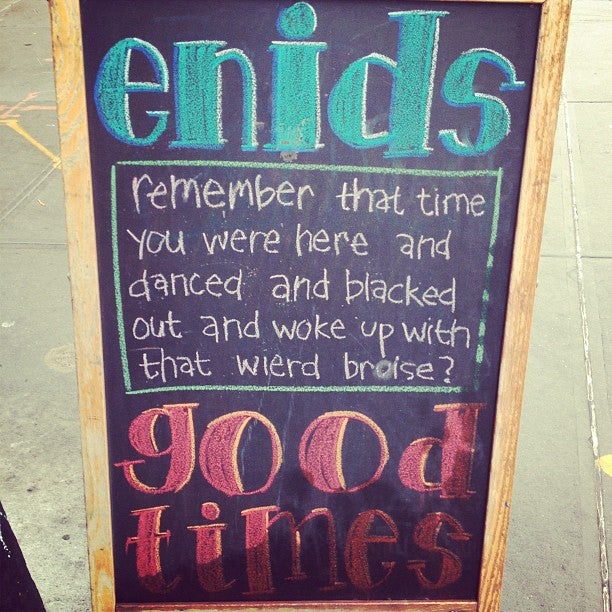 enids
remember that time
you were here and
danced and blacked
out and woke up with
that wierd broise?
good
times